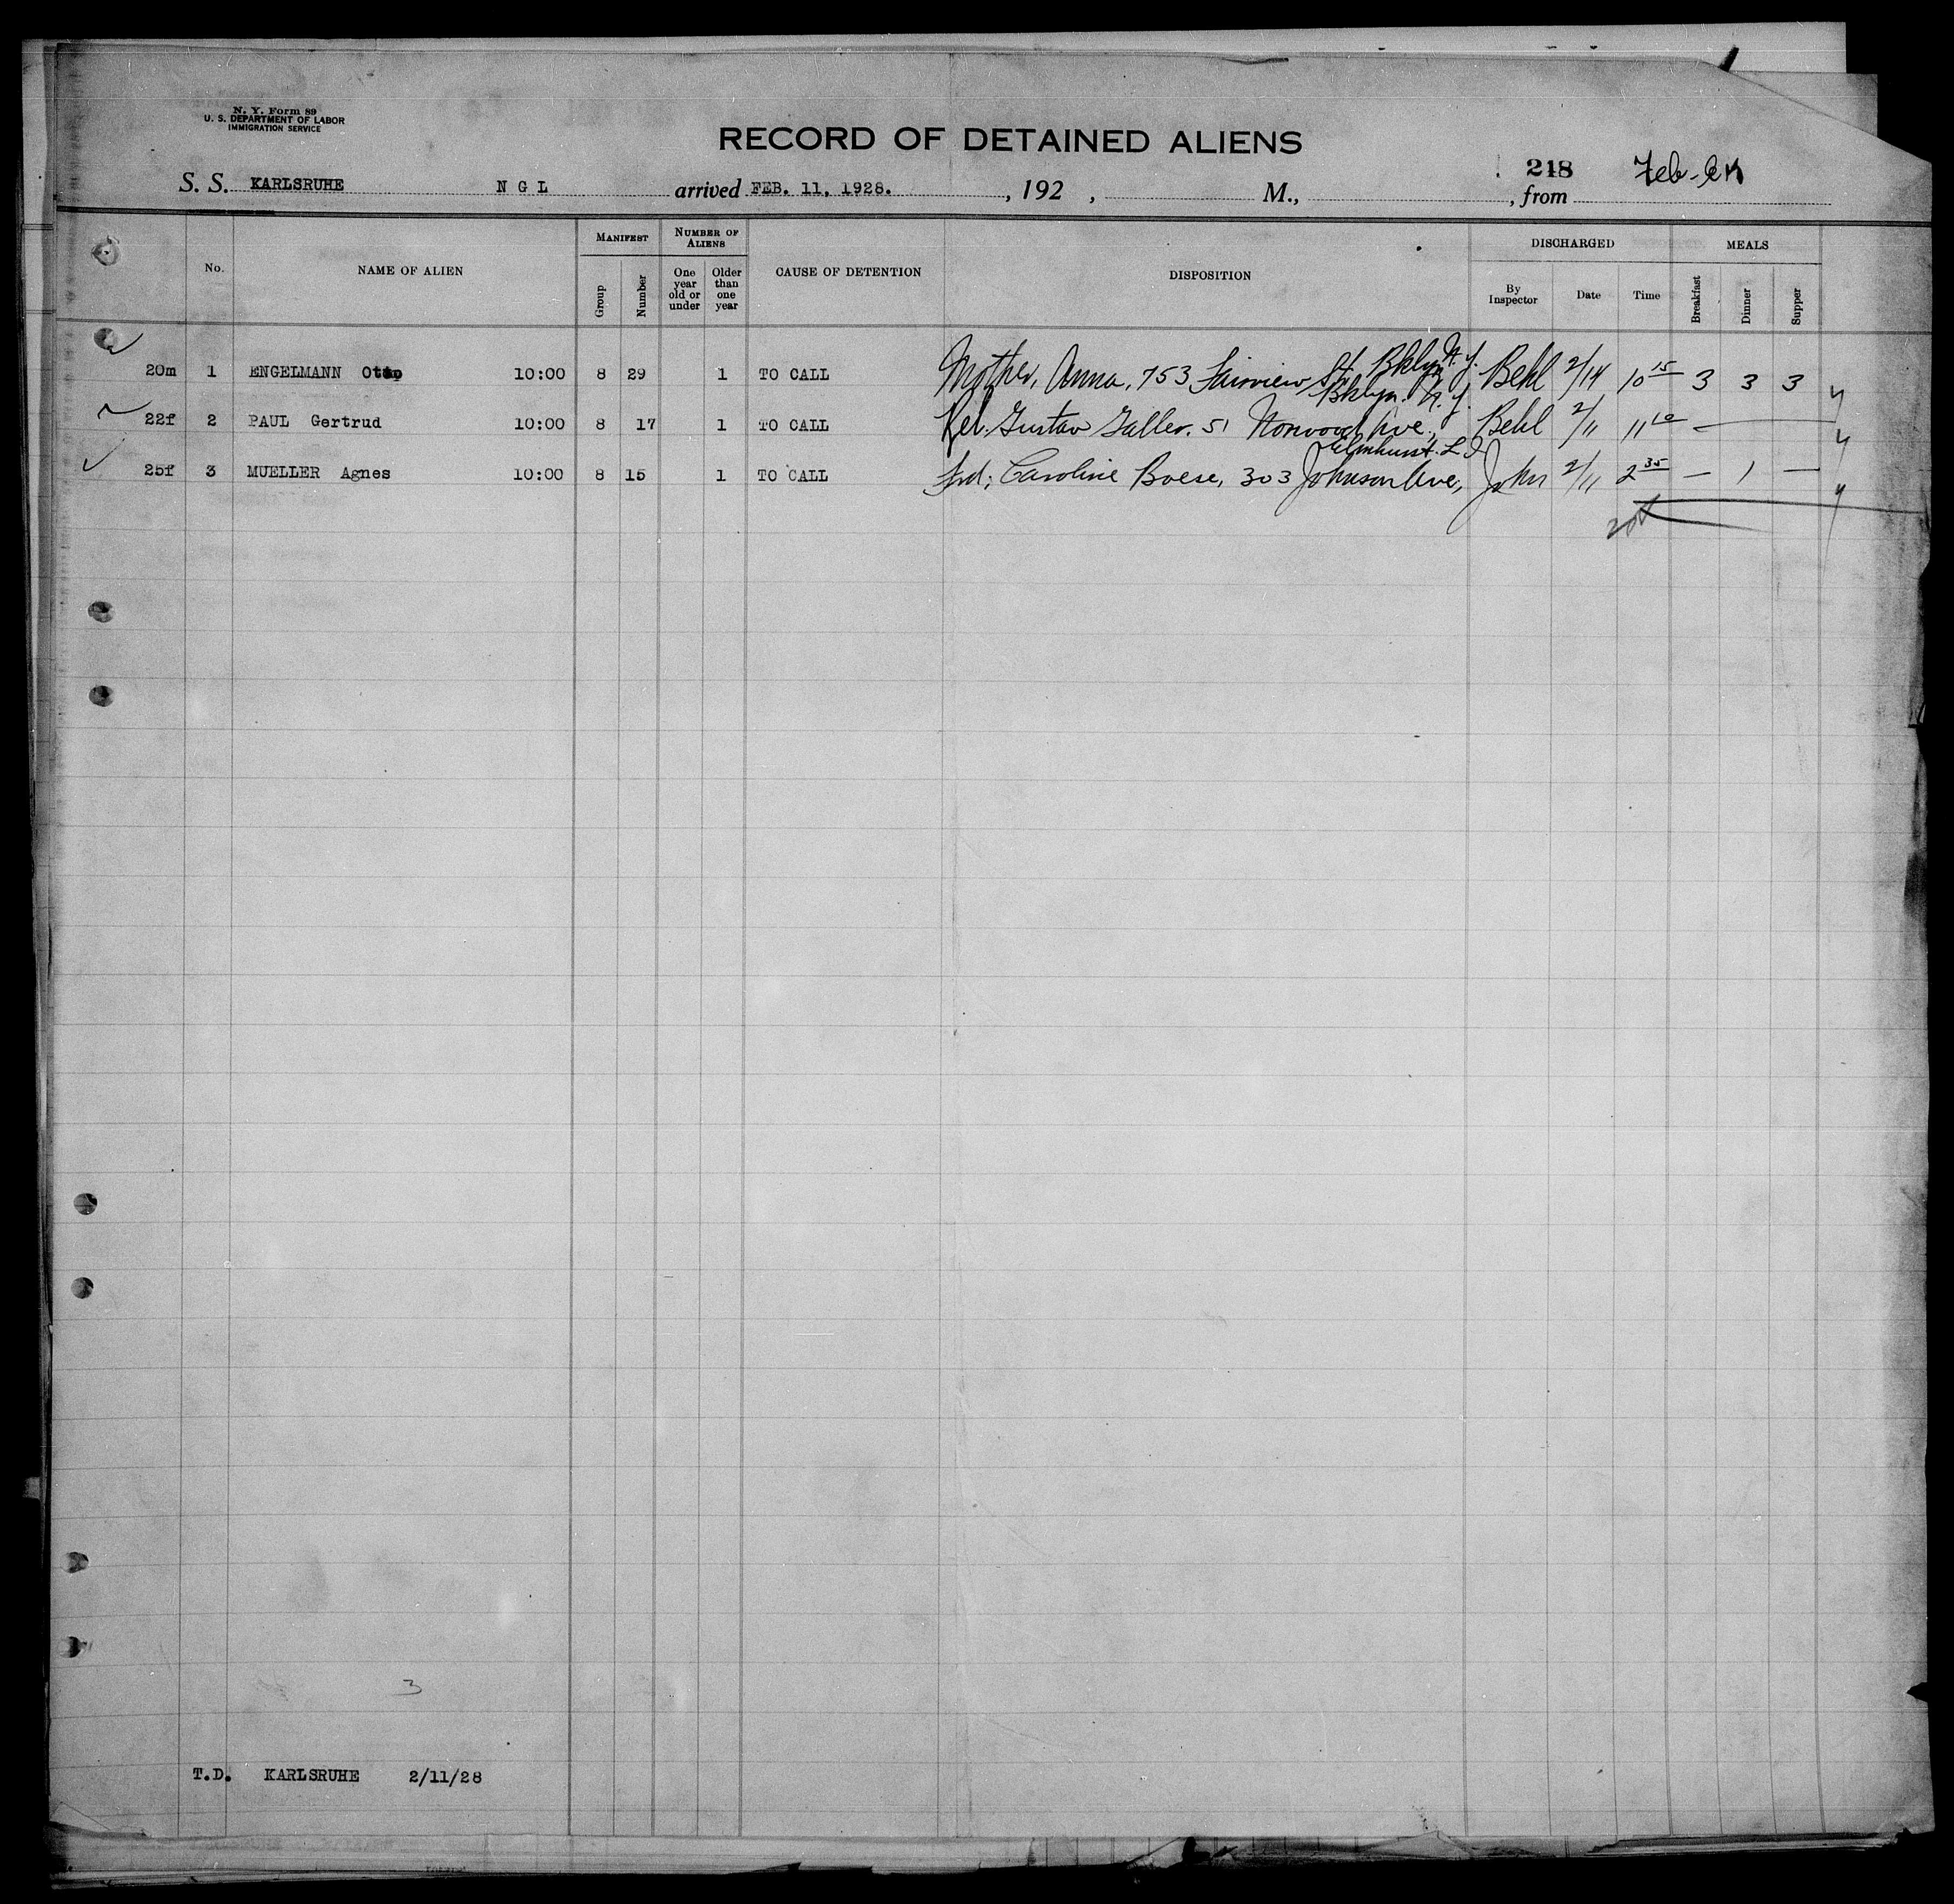 N. Y. Form 89
U. S. DEPARTMENT OF LABOR
IMMIGRATION SERVICE
RECORD OF DETAINED ALIENS
218
S. S. KARLSRUHE N G L arrived FEB. 11, 1928. , 192 , M., , from
No. NAME OF ALIEN MANIFEST Group Number NUMBER OF ALIENS One year old or under Older than one year CAUSE OF DETENTION DISPOSITION DISCHARGED By Inspector Date Time MEALS Breakfast Dinner Supper
20m 1 ENGELMANN Otto 10:00 8 29 1 TO CALL Mother, Anna, 753 Fairview St. Bklyn N. Y. Behl 2/14 10 15 3 3 3
Bklyn. N. Y.
22f 2 PAUL Gertrud 10:00 8 17 1 TO CALL Rel. Gustav Galler. 51 Norwood Ave., Behl 2/11 11 10 —
Elmhurst. L I
25f 3 MUELLER Agnes 10:00 8 15 1 TO CALL Frd; Caroline Boese, 303 Johnson Ave, John 2/11 2 35 — 1 —
3
T.D. KARLSRUHE 2/11/28